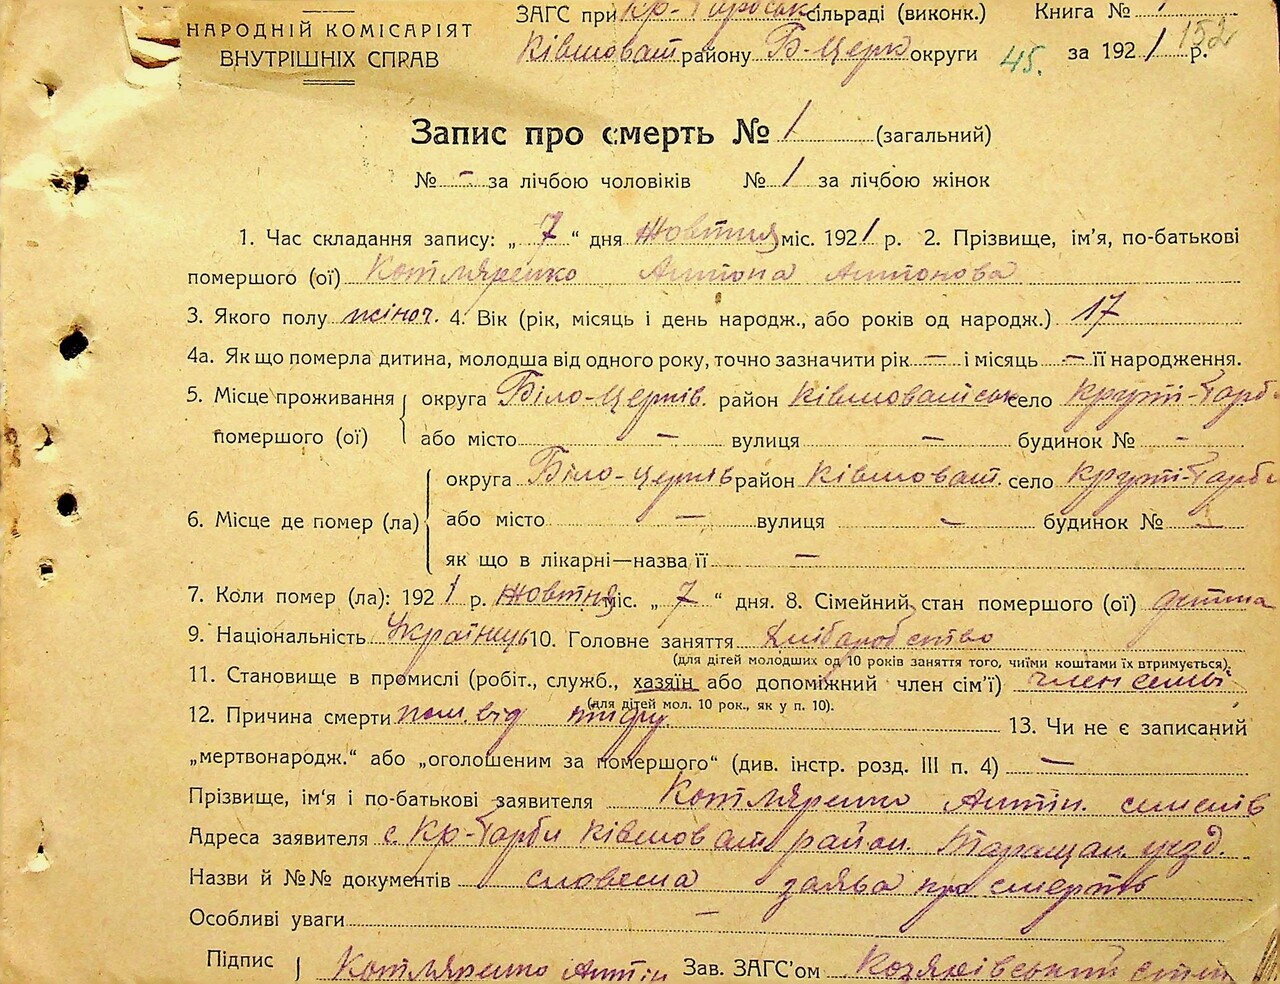 НАРОДНІЙ КОМІСАРІЯТ
ВНУТРІШНІХ СПРАВ
ЗАГС при Кр-Горбськ. сільраді (виконк.) Книга № 1
Ківшоват. району Б-Церк округи 45. за 1921 р. 152
Запис про смерть № 1 (загальний)
№ - за лічбою чоловіків № 1 за лічбою жінок
1. Час складання запису: „ 7 “ дня Жовтня міс. 1921 р. 2. Прізвище, ім'я, по-батькові
помершого (ої) Котляренко Антона Антонова
3. Якого полу жіноч. 4. Вік (рік, місяць і день народж., або років од народж.) 17
4а. Як що померла дитина, молодша від одного року, точно зазначити рік — і місяць — її народження.
5. Місце проживання округа Біло-Церків. район Ківшоватськ село Круті-Горб.
помершого (ої) або місто — вулиця — будинок № -
6. Місце де помер (ла) округа Біло-Церків район Ківшоват. село Круті-Горби
або місто — вулиця - будинок №
як що в лікарні—назва її —
7. Коли помер (ла): 1921 р. Жовтня міс. „ 7 “ дня. 8. Сімейний стан помершого (ої) дитина
9. Національність Українець 10. Головне заняття Хліборобство
(для дітей молодших од 10 років заняття того, чиїми коштами їх втримується).
11. Становище в промислі (робіт., служб., хазяїн або допоміжний член сім'ї) член семьї
(для дітей мол. 10 рок., як у п. 10).
12. Причина смерти пом. від тифу 13. Чи не є записаний
„мертвонародж.“ або „оголошеним за помершого“ (див. інстр. розд. III п. 4) —
Прізвище, ім'я і по-батькові заявителя Котляренко Антін. семенів
Адреса заявителя с. Кр-Горби Ківшоват. район. Таращан. уєзд.
Назви й №№ документів словесна заява про смерть
Особливі уваги —
Підпис Котляренко Антін Зав. ЗАГС'ом